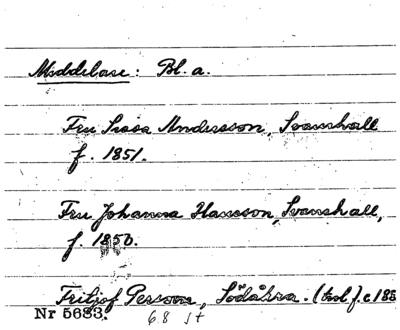 Meddelare: Bl. a.
Fru Sissa Andersson, Svanshall
f. 1851.
Fru Johanna Hansson, Svanshall,
f. 1850.
Fritjof Persson, Södåkra. (trol. f. c 185
Nr 5683. 68 st